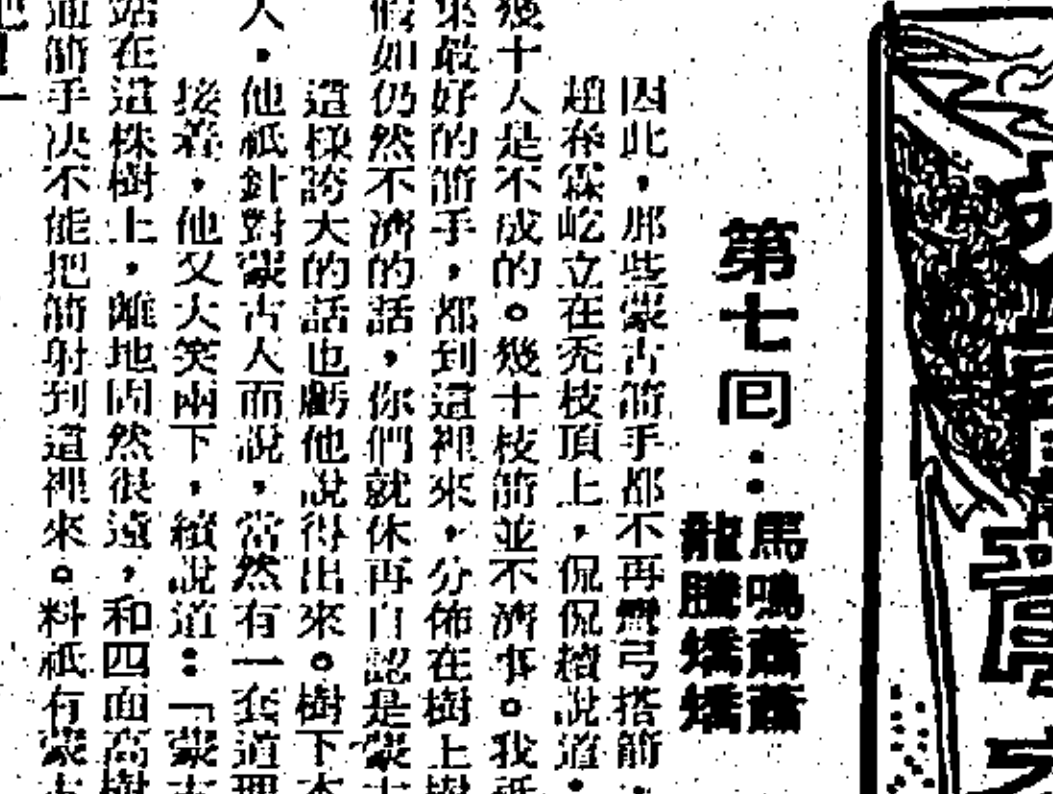 第七回：
馬鳴蕭蕭
龍騰矯矯
因此，那些蒙古箭手都不再彎弓搭箭，
趙春霖屹立在禿枝頂上，侃侃續說道：
幾十人是不成的。幾十枝箭並不濟事。我祇
集最好的箭手，都到這裡來，分佈在樹上樹
假如仍然不濟的話，你們就休再自認是蒙古
這樣誇大的話也虧他說得出來。樹下本
人，他祇針對蒙古人而說，當然有一套道理
接着，他又大笑兩下，續說道：「蒙古
站在這株樹上，離地固然很遠，和四面高樹
通箭手决不能把箭射到這裡來。料祇有蒙古